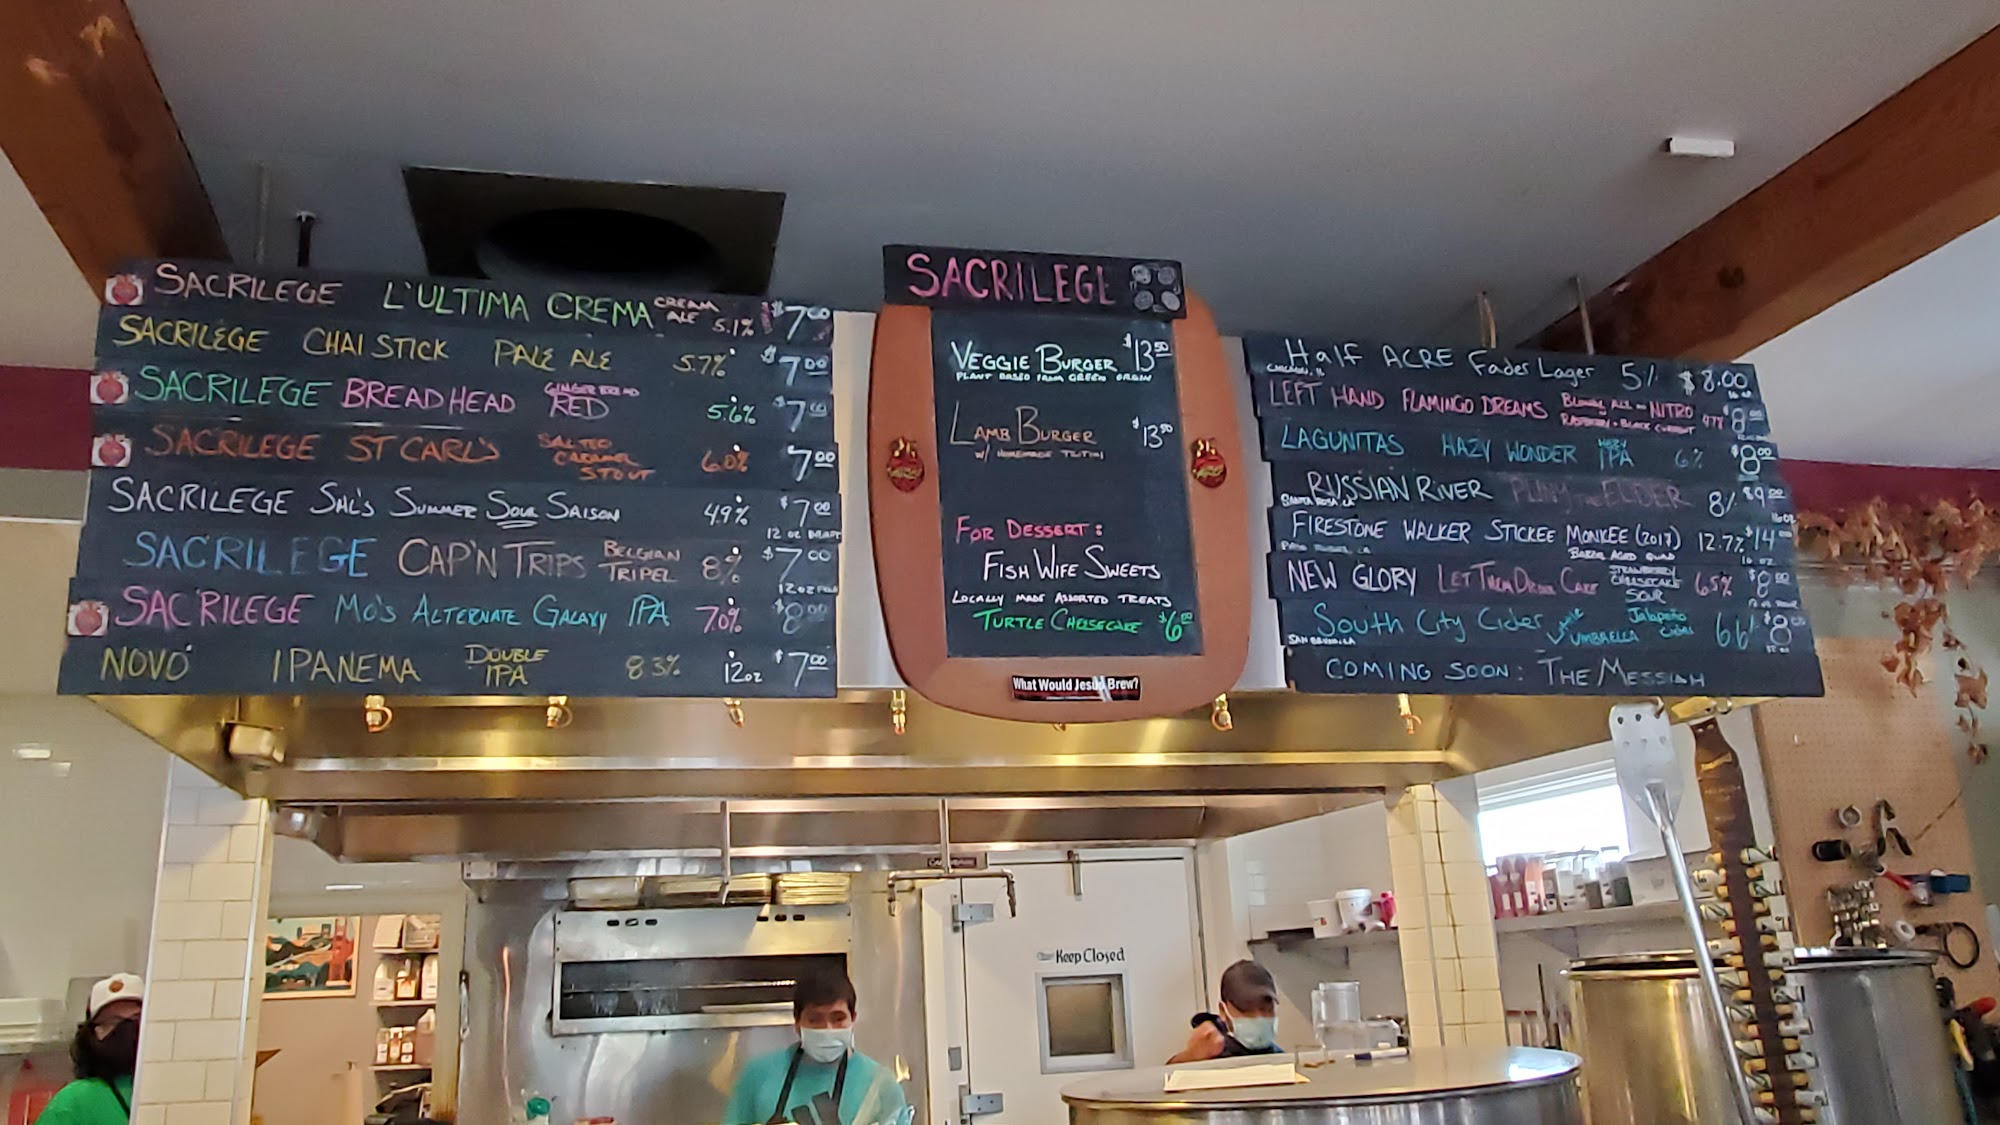 SACRILEGE L'ULTIMA CREMA CREAM ALE 5.1% $7.00
SACRILEGE CHAI STICK PALE ALE 5.7% $7.00
SACRILEGE BREADHEAD GINGERBREAD RED 5.6% $7.00
SACRILEGE ST CARL'S SALTED CARAMEL STOUT 6.0% 7.00
SACRILEGE SHL'S SUMMER SOUR SAISON 4.9% $7.00
12 OZ
SACRILEGE CAP'N TRIPS BELGIAN TRIPEL 8% $7.00
12 OZ POUR
SACRILEGE MO'S ALTERNATE GALAXY IPA 7.0% $8.00
NOVO IPANEMA DOUBLE IPA 8.3% 12oz $7.00
SACRILEGE
VEGGIE BURGER $13.50
PLANT BASED FROM GREEN ORGIN
LAMB BURGER $13.50
W/ HOMEMADE
FOR DESSERT:
FISH WIFE SWEETS
LOCALLY MADE ASSORTED TREATS
TURTLE CHEESECAKE $6.00
What Would Jesus Brew?
Half ACRE Fader Lager 5% $8.00
CHICAGO, IL 16 OZ
LEFT HAND FLAMINGO DREAMS BLONDE ALE ON NITRO 4.7% $8.00
RASPBERRY + BLACK CURRENT
LAGUNITAS HAZY WONDER HAZY IPA 6% $8.00
RUSSIAN RIVER PLINY THE ELDER 8% $9.00
SANTA ROSA, CA 16oz
FIRESTONE WALKER STICKEE MONKEE (2017) 12.7% $14.00
PASO ROBLES, CA BARREL AGED QUAD
NEW GLORY LET THEM DRINK CAKE STRAWBERRY CHEESECAKE SOUR 6.5% $8.00
South City Cider UMBRELLA Jalapeño Cider 6.6% $8.00
SAN BRUNO, CA
COMING SOON: THE MESSIAH
Keep Closed